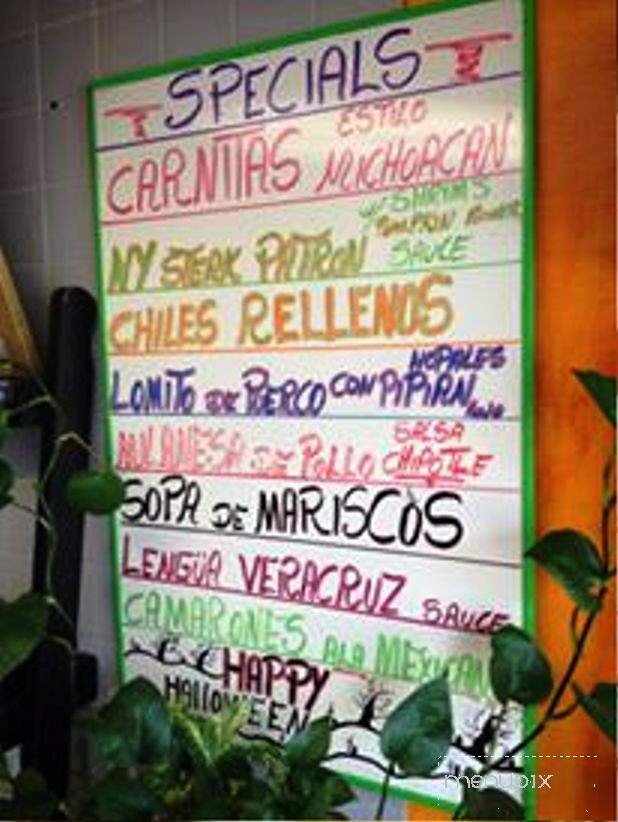 SPECIALS
CARNITAS ESTILO MICHOACAN
NY STEAK PATRON W/ SHRIMPS
SAUCE
CHILES RELLENOS
LOMITO DE PUERCO CON PIPIAN NOPALES
MILANESA DE POLLO SALSA CHIPOTLE
SOPA DE MARISCOS
LENGÜA VERACRUZ SAUCE
CAMARONES ALA MEXICAN
HAPPY
HALLOWEEN
menupix